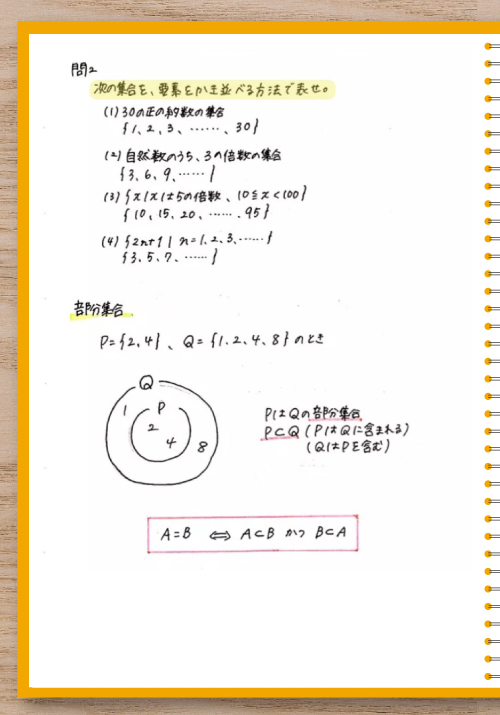 問2
次の集合を、要素をかき並べる方法で表せ。
(1) 30の正の約数の集合
{1, 2, 3, ……, 30}
(2) 自然数のうち、3の倍数の集合
{3, 6, 9, ……}
(3) {x | xは5の倍数、10≦x<100}
{10, 15, 20, ……, 95}
(4) {2n+1 | n=1, 2, 3, ……}
{3, 5, 7, ……}
部分集合
P={2, 4}、Q={1, 2, 4, 8}のとき
Q
1 P
2
4 8
PはQの部分集合
P⊂Q (PはQに含まれる)
(QはPを含む)
A=B ⇔ A⊂B かつ B⊂A